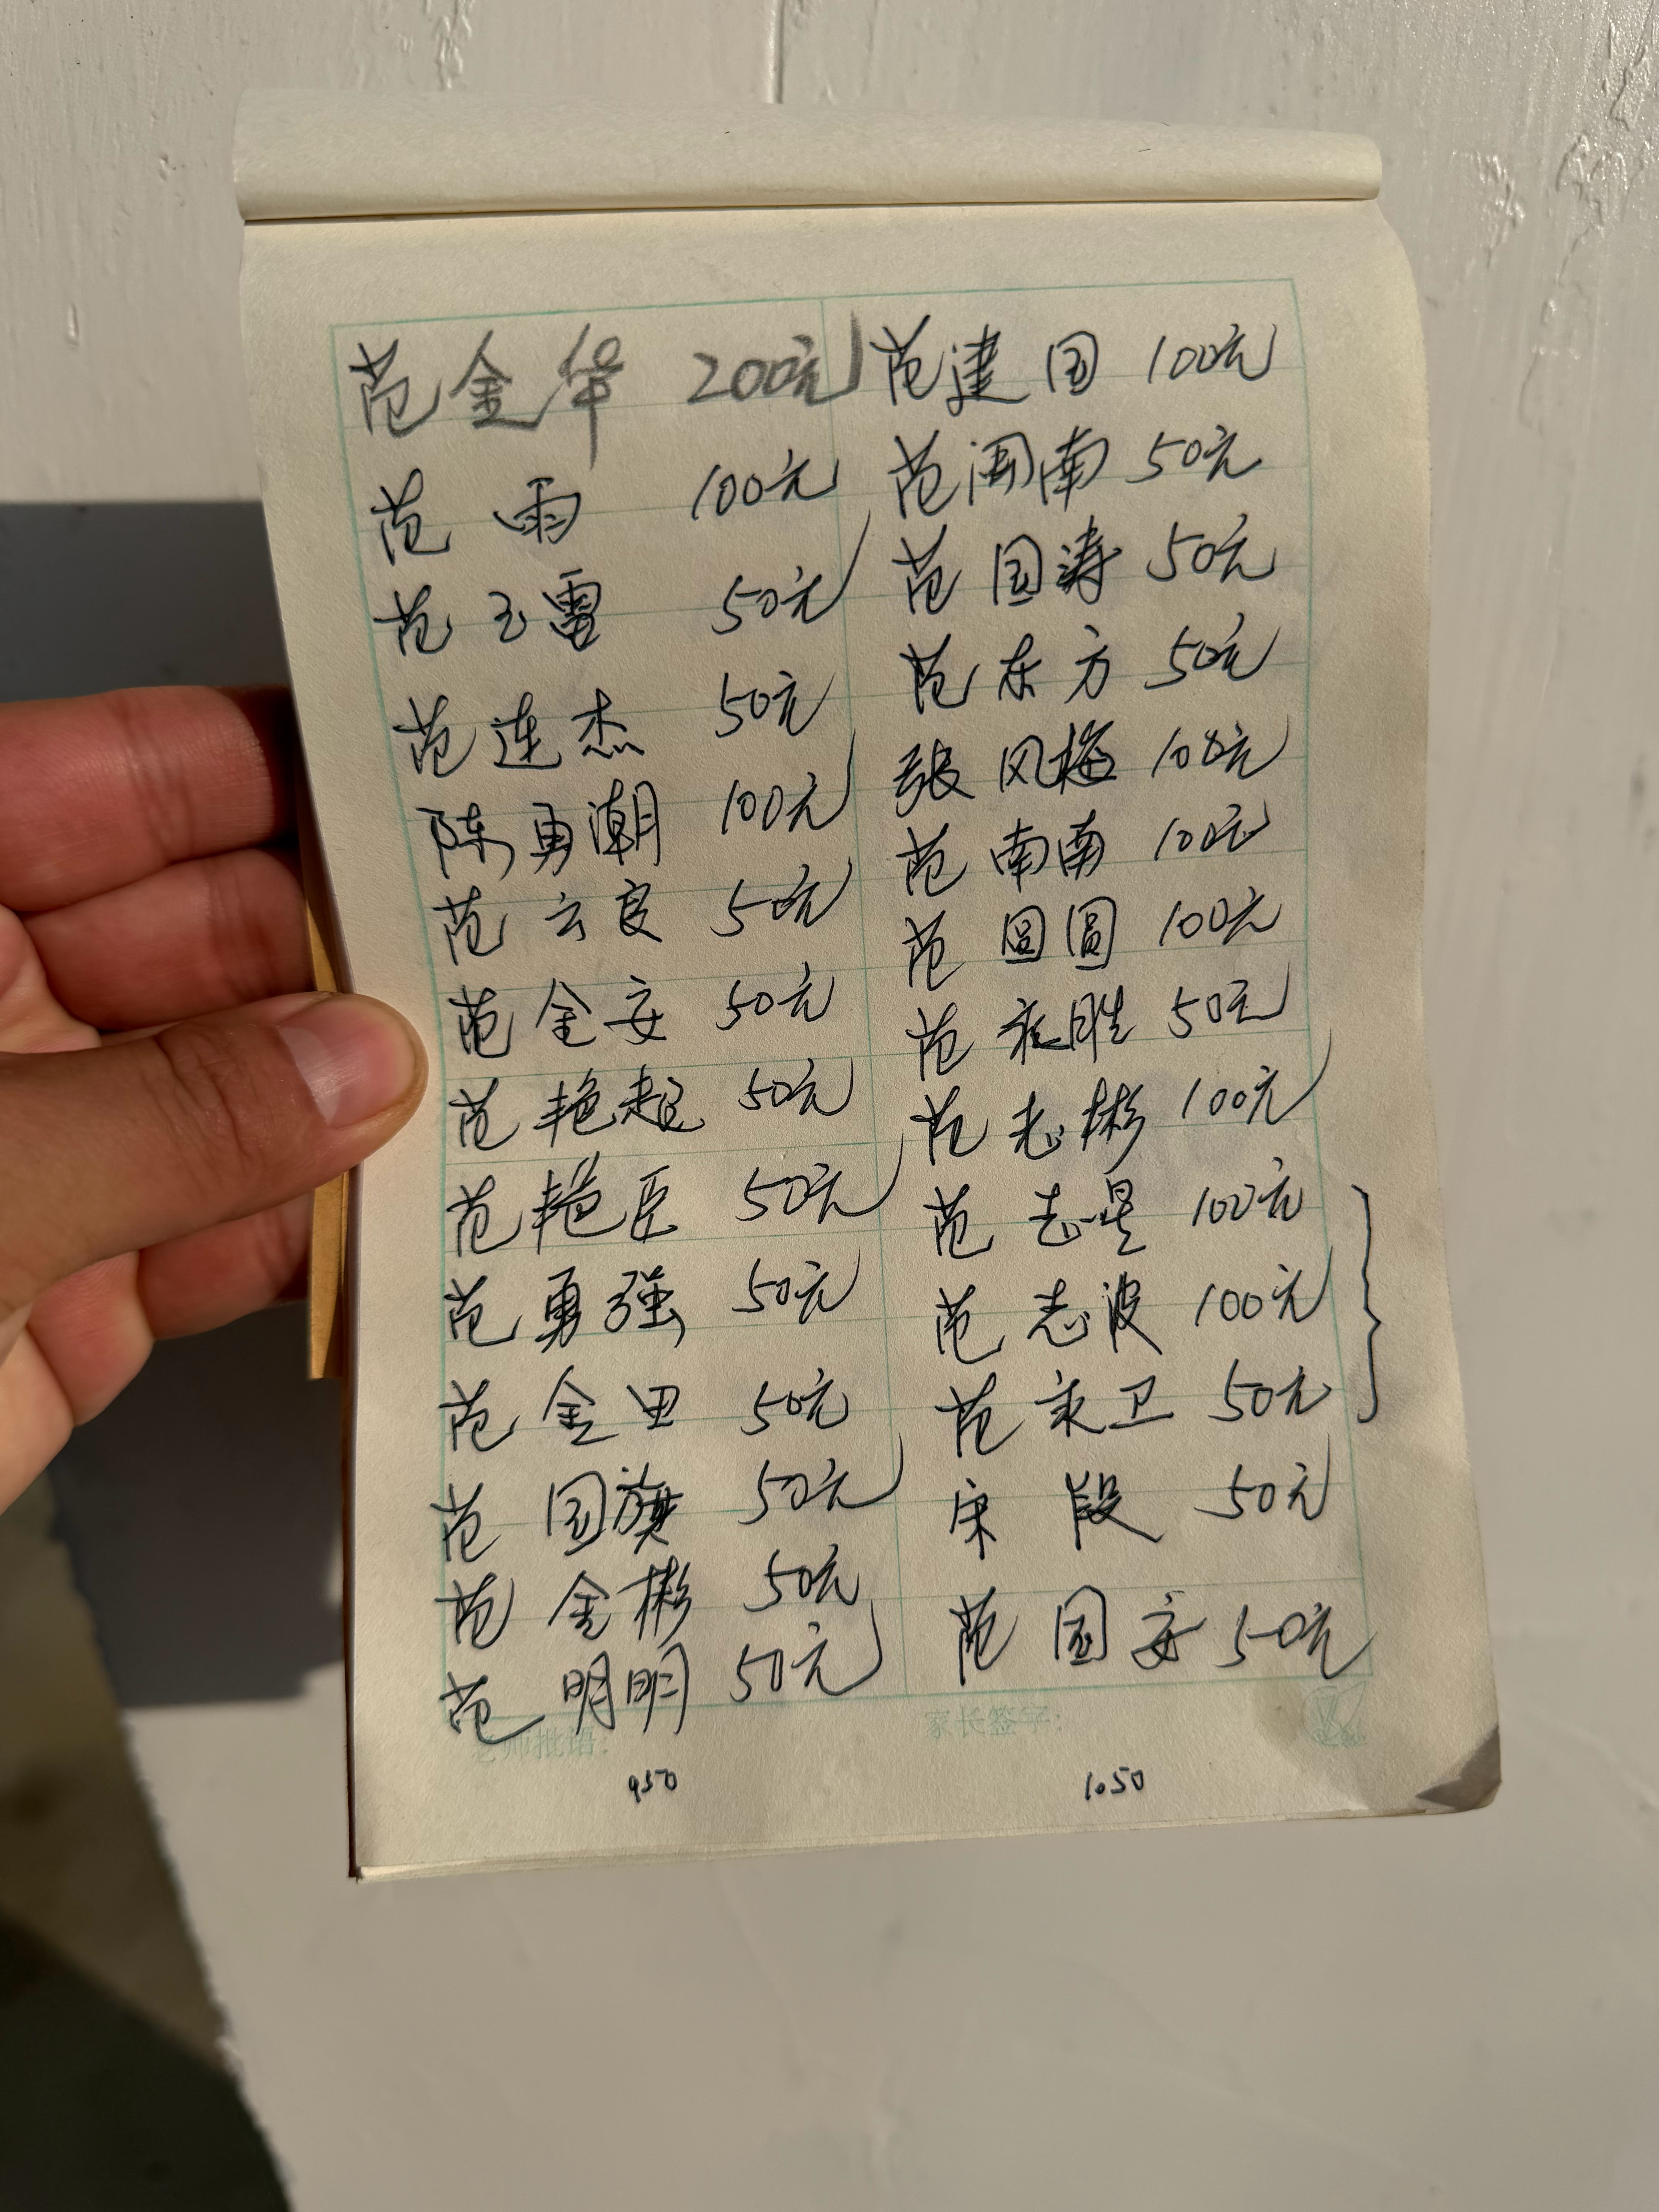 范金华 200元
范雨 100元
范玉雷 50元
范连杰 50元
陈勇潮 100元
范云良 50元
范金安 50元
范艳超 50元
范艳臣 50元
范勇强 50元
范金田 50元
范国旗 50元
范金彬 50元
范明明 50元
950
范建国 100元
范闯南 50元
范国涛 50元
范东方 50元
张风梅 100元
范南南 100元
范圆圆 100元
范胜 50元
范志彬 100元
范志星 100元
范志波 100元
范卫 50元
宋段 50元
范国安 50元
家长签字：
1050
老师批语：